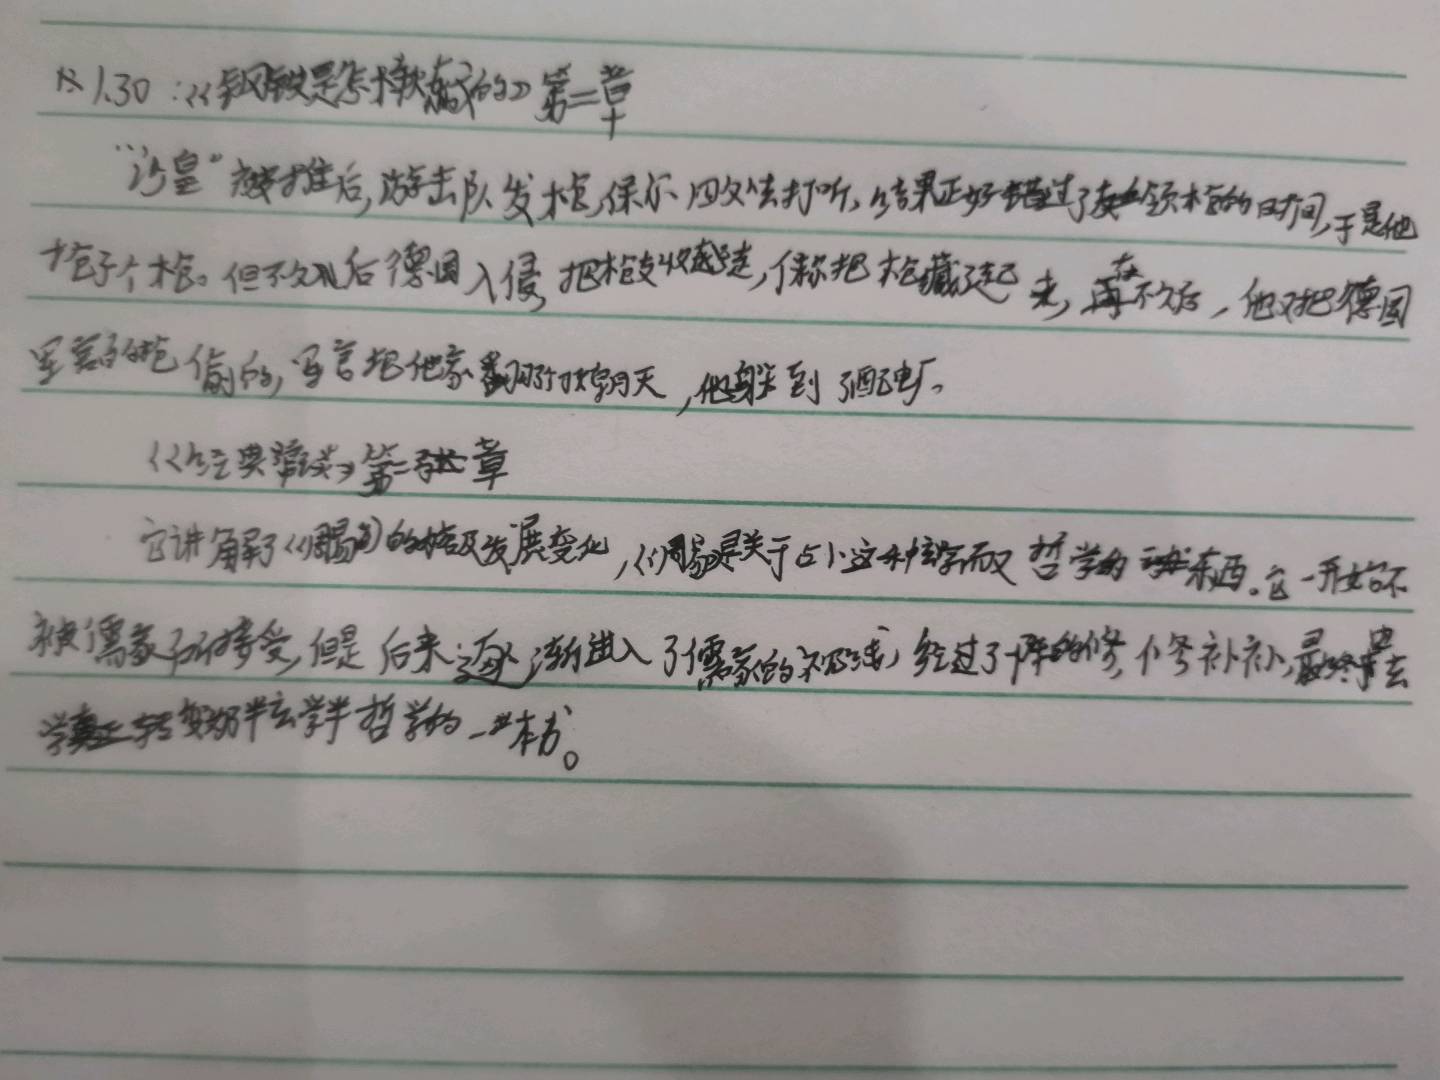 1.30:《钢铁是怎样炼成的》第二章
"沙皇"被推后,游击队发枪,保尔四处去打听,结果正好错过了领枪的时间,于是他
抢了个枪。但不久后德国入侵,把枪支收走,保尔把枪藏了起来,在不久后,他又把德国
军官的枪偷的,军官把他家翻了个底朝天,他躲到了配电厂。
《经典常谈》第二章
它讲解了《周易》的及发展变化,《周易》是关于占卜这种玄学而又哲学的东西。它一开始不
被儒家所接受,但是后来逐渐进入了儒家的,经过了一阵的修修补补,最终是玄
学转变为半玄学半哲学的一本书。